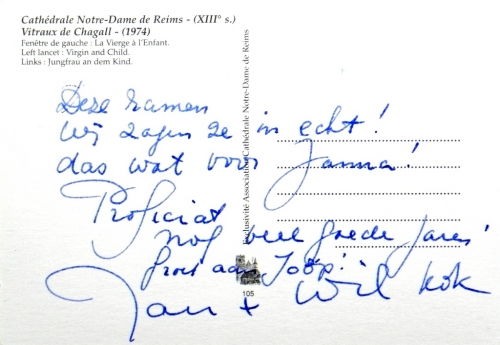 Cathédrale Notre-Dame de Reims - (XIII° s.)
Vitraux de Chagall - (1974)
Fenêtre de gauche : La Vierge à l'Enfant.
Left lancet : Virgin and Child.
Links : Jungfrau an dem Kind.
Deze ramen
wij zagen ze in echt!
das wat voor Janna!
Proficiat
nog veel goede jaren!
groet aan Joop!
Jan + Wil Kok
Exclusivité Association Cathédrale Notre-Dame de Reims
105